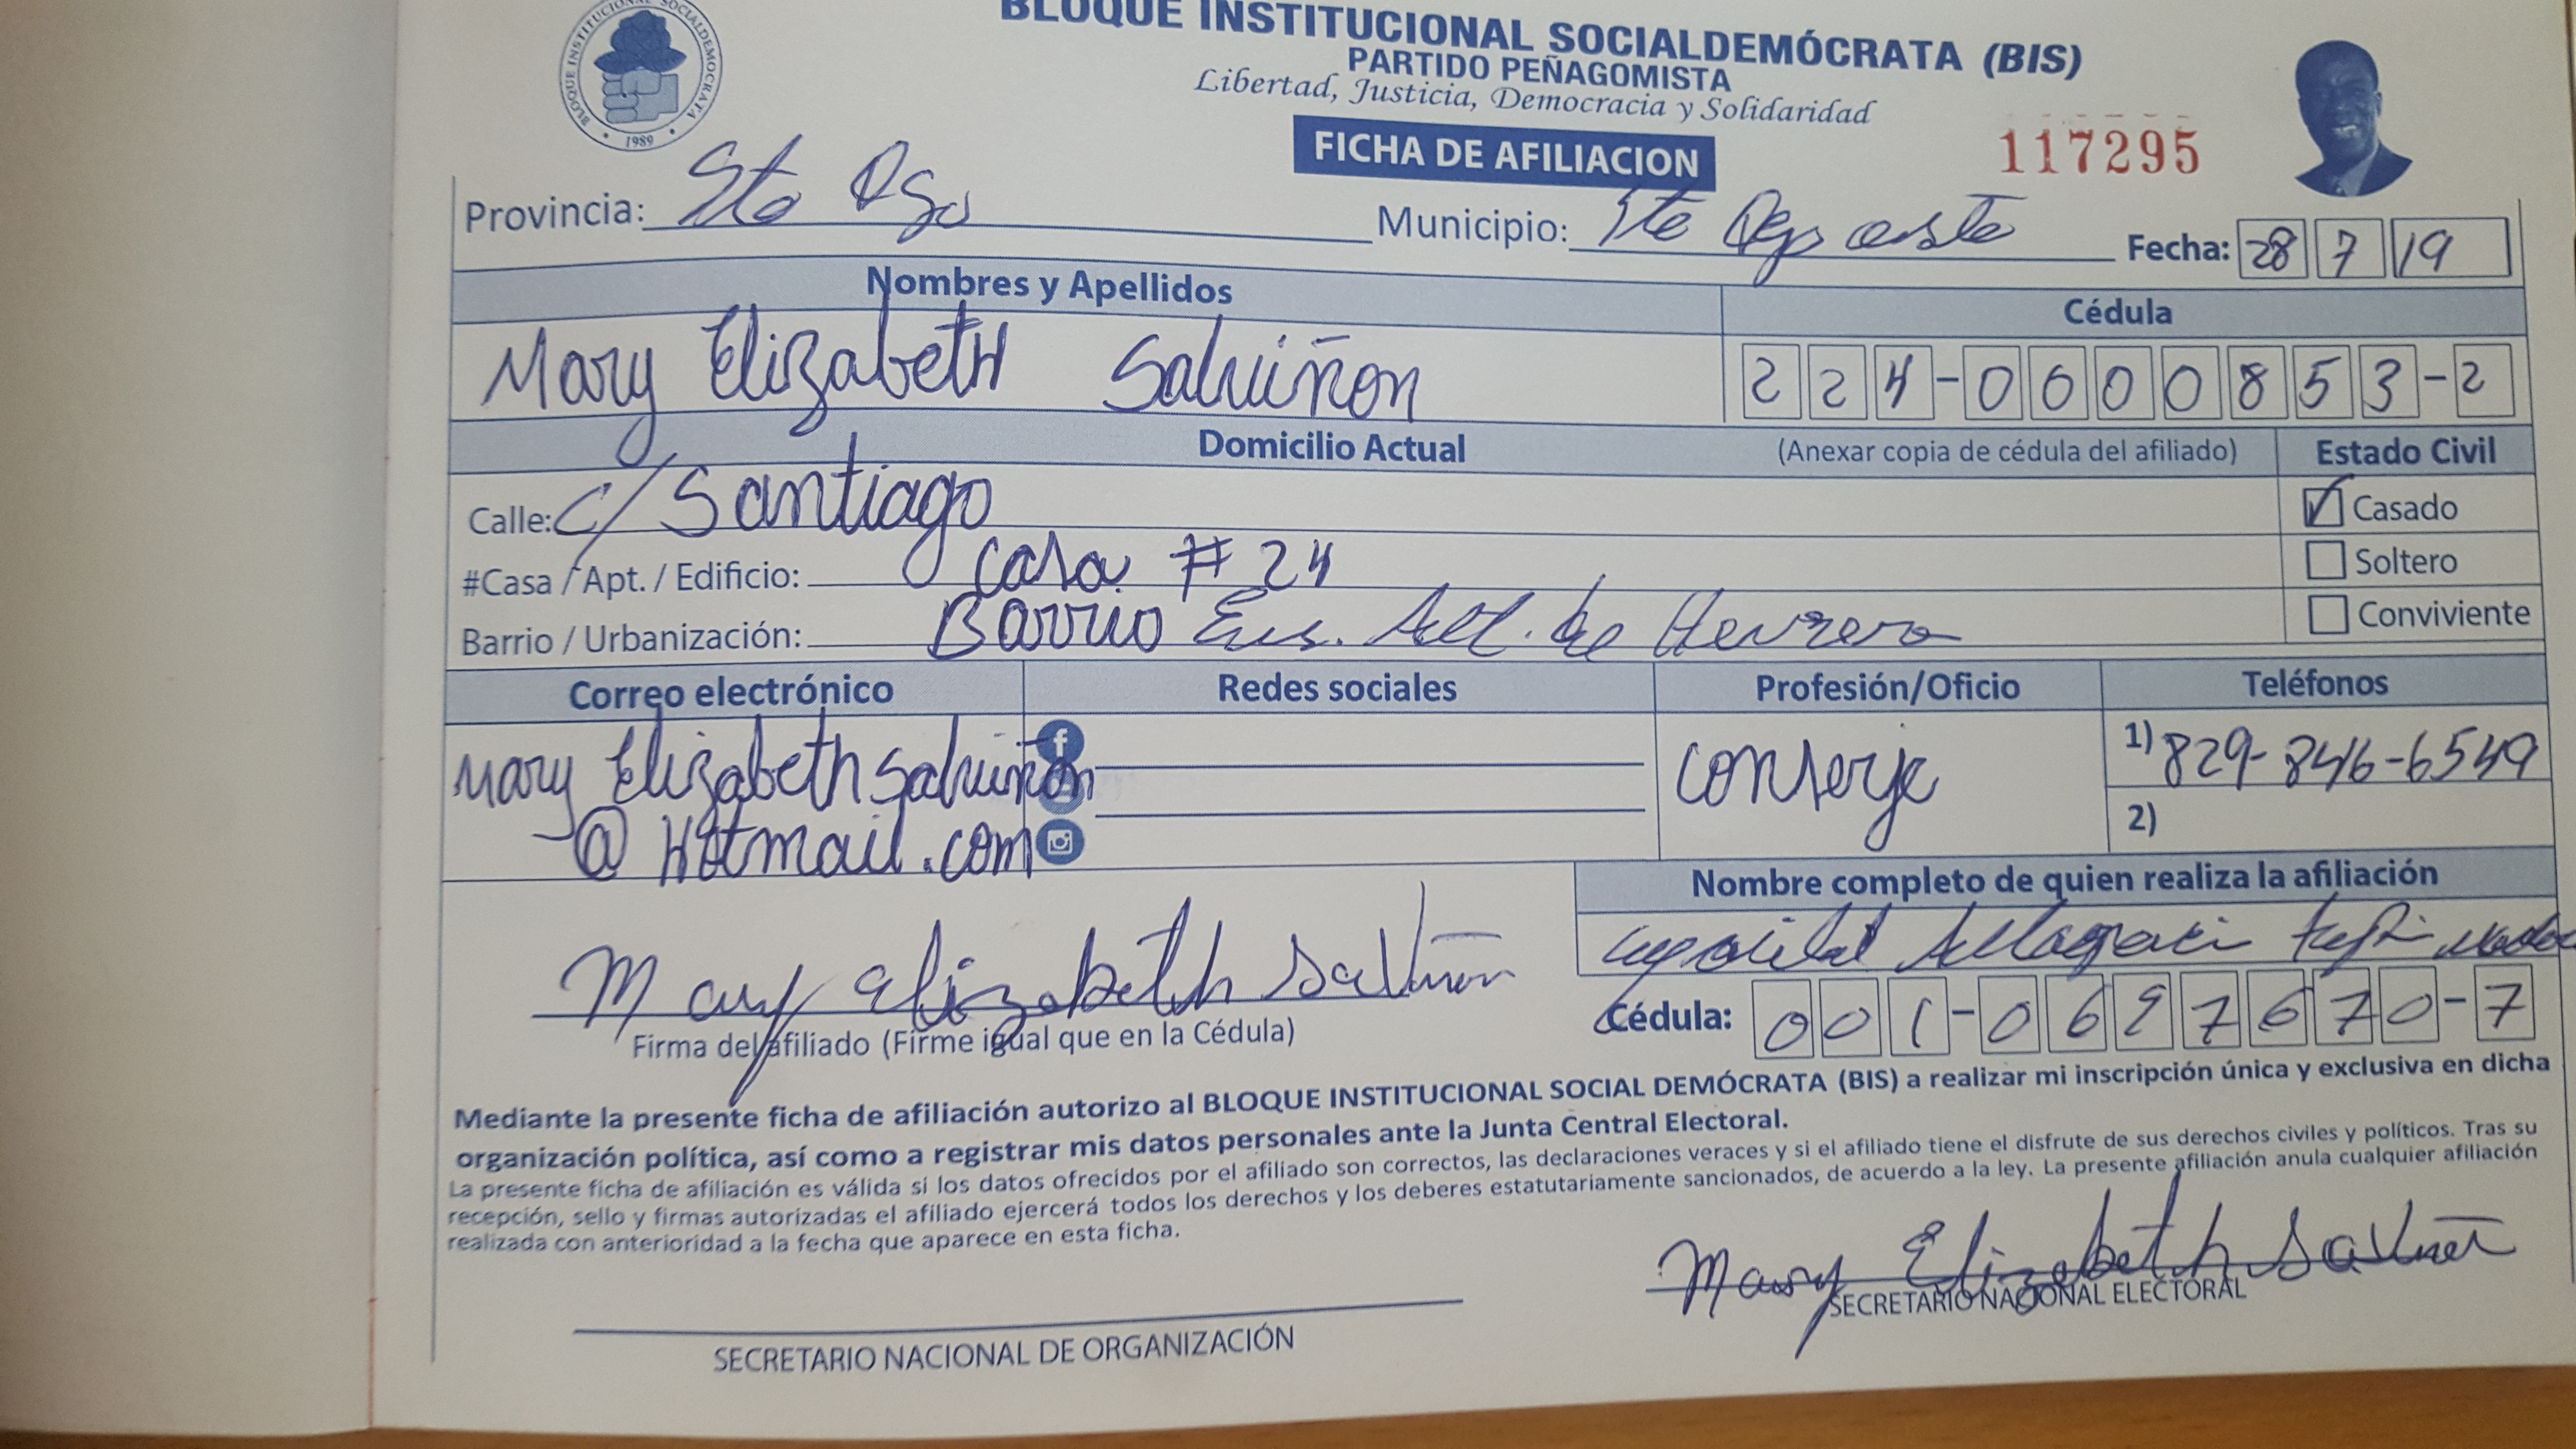 BLOQUE INSTITUCIONAL SOCIALDEMOCRATA
1989
BLOQUE INSTITUCIONAL SOCIALDEMÓCRATA (BIS)
PARTIDO PEÑAGOMISTA
Libertad, Justicia, Democracia y Solidaridad
FICHA DE AFILIACION
117295
Provincia: Sto Dgo Municipio: Sto Dgo oeste Fecha: 28 7 19
Nombres y Apellidos Cédula
Mary Elizabeth Salviñon 224-0000853-2
Domicilio Actual (Anexar copia de cédula del afiliado) Estado Civil
Calle: c/ Santiago Casado
#Casa / Apt. / Edificio: casa # 24 Soltero
Barrio / Urbanización: Barrio Ens. de Herrera Conviviente
Correo electrónico Redes sociales Profesión/Oficio Teléfonos
Mary Elizabeth Salviñon conserje 1) 829-846-6549
@ Hotmail.com 2)
Nombre completo de quien realiza la afiliación
Mary Elizabeth Salviñon
Firma del afiliado (Firme igual que en la Cédula) Cédula: 001-0697670-7
Mediante la presente ficha de afiliación autorizo al BLOQUE INSTITUCIONAL SOCIAL DEMÓCRATA (BIS) a realizar mi inscripción única y exclusiva en dicha
organización política, así como a registrar mis datos personales ante la Junta Central Electoral.
La presente ficha de afiliación es válida si los datos ofrecidos por el afiliado son correctos, las declaraciones veraces y si el afiliado tiene el disfrute de sus derechos civiles y políticos. Tras su
recepción, sello y firmas autorizadas el afiliado ejercerá todos los derechos y los deberes estatutariamente sancionados, de acuerdo a la ley. La presente afiliación anula cualquier afiliación
realizada con anterioridad a la fecha que aparece en esta ficha.
Mary Elizabeth Salviñon
SECRETARIO NACIONAL ELECTORAL
SECRETARIO NACIONAL DE ORGANIZACIÓN